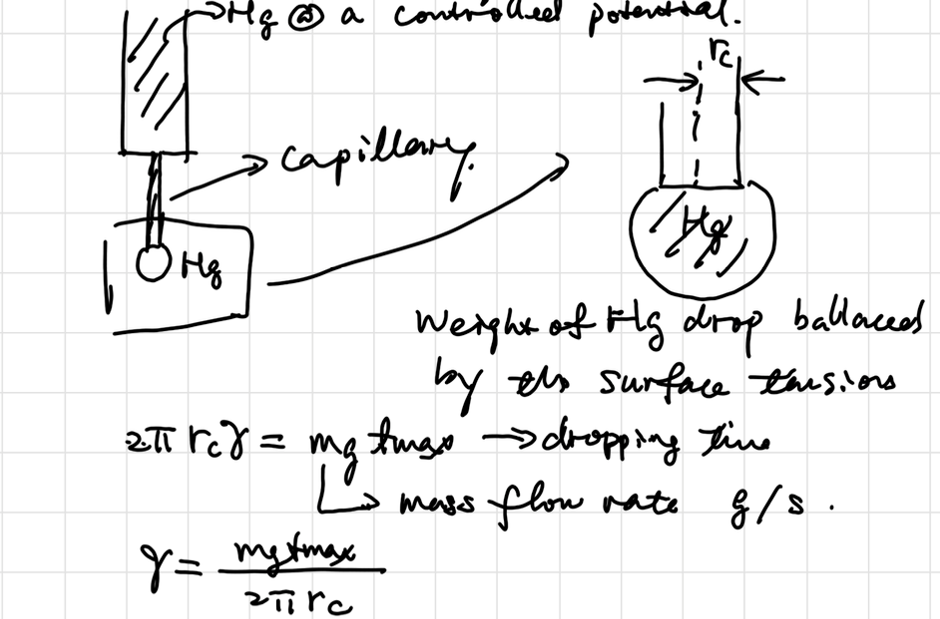 Hg @ a controlled potential.
rc
Capillary.
Hg
Hg
Weight of Hg drop ballaced
by the surface tensions
2π rc γ = mg tmax → dropping time
mass flow rate g/s .
γ = mg tmax
2π rc